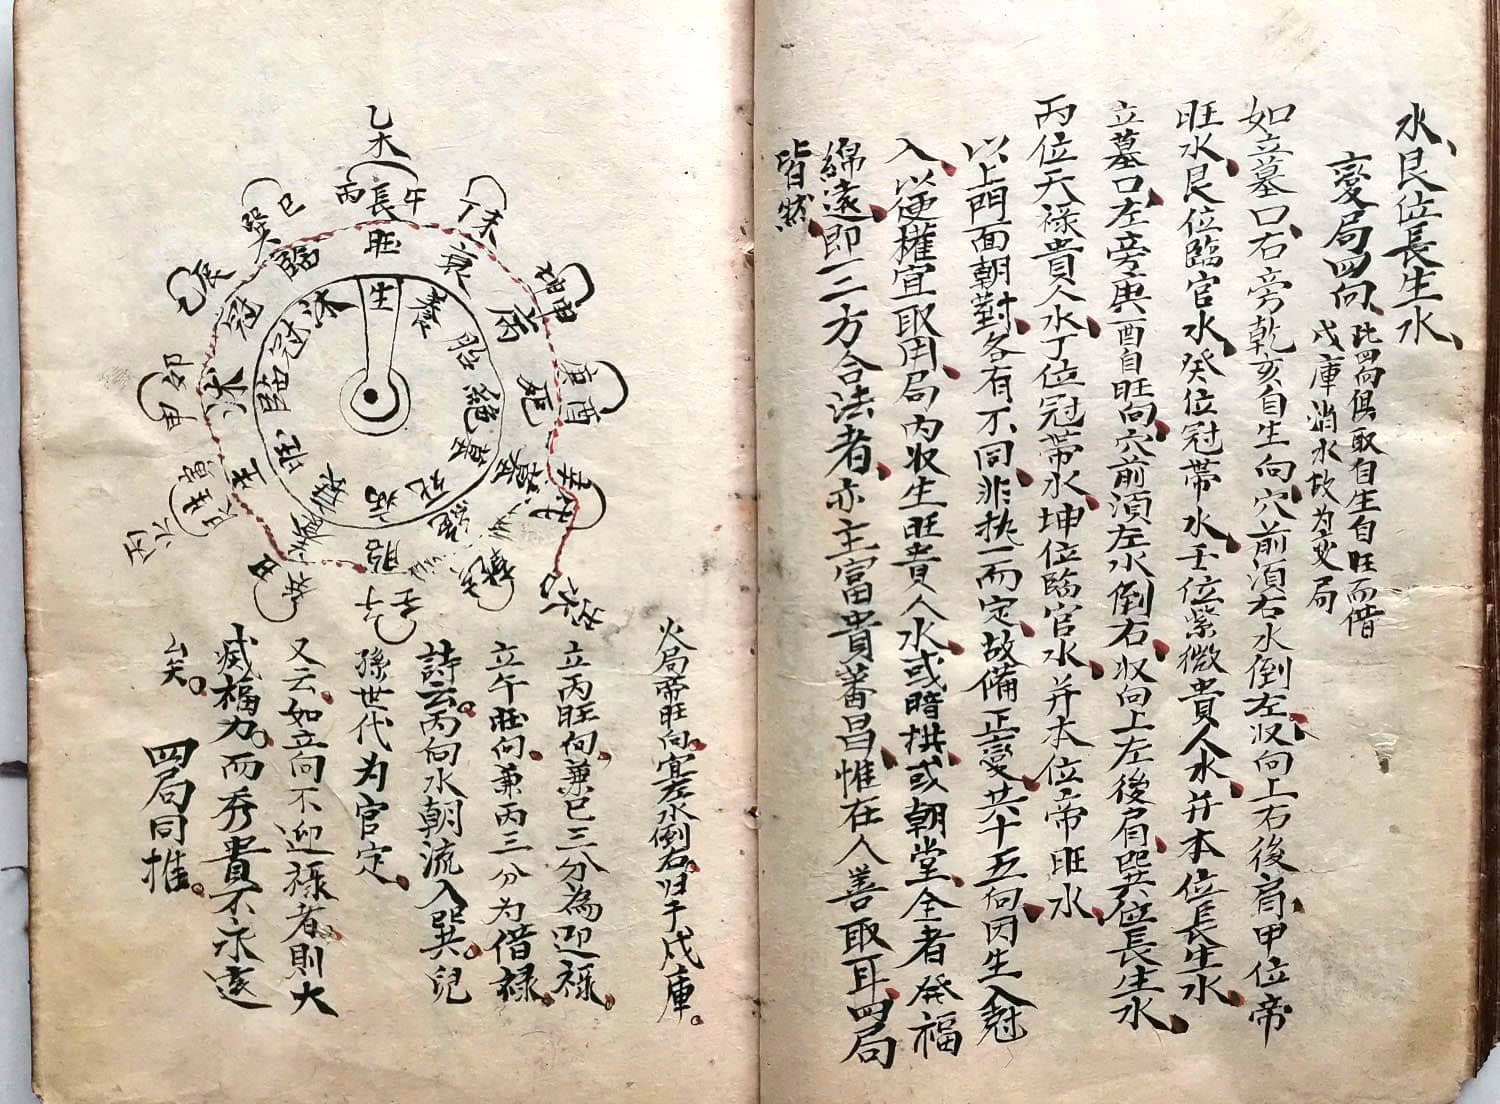 水艮位長生水
變局四向
此四向俱取自生自旺而借
戌庫消水故为变局
如立墓口右旁乾亥自生向穴前須右水倒左収向上右後肩甲位帝
旺水艮位臨官水癸位冠帶水壬位紫微貴人水并本位長生水
立墓口左旁庚酉自旺向穴前須左水倒右収向上左後肩巽位長生水
丙位天禄貴人水丁位冠帶水坤位臨官水并本位帝旺水
以上門面朝對各有不同非执一而定故備正變共十五向因生入尅
入以便權宜取用局内収生旺貴人水或暗拱或朝堂全者発福
綿遠即一二方合法者亦主富貴蕃昌惟在人善取耳四局
皆然
乙木
丙 長 午
丁未
坤申
庚酉
巽巳
乙辰
甲卯
壬子
旺 衰 病 死 墓 絕 胎
沐 冠 臨
生 養 胎 絕 墓 死 病
沐 冠 臨
火局帝旺向宜左水倒右归于戌庫
立丙旺向兼巳三分為迎禄
立午旺向兼丙三分为借禄
詩云丙向水朝流入巽兒
孫世代为官定
又云如立向不迎禄者則大
減福力而秀貴不永遠
矣
四局同推